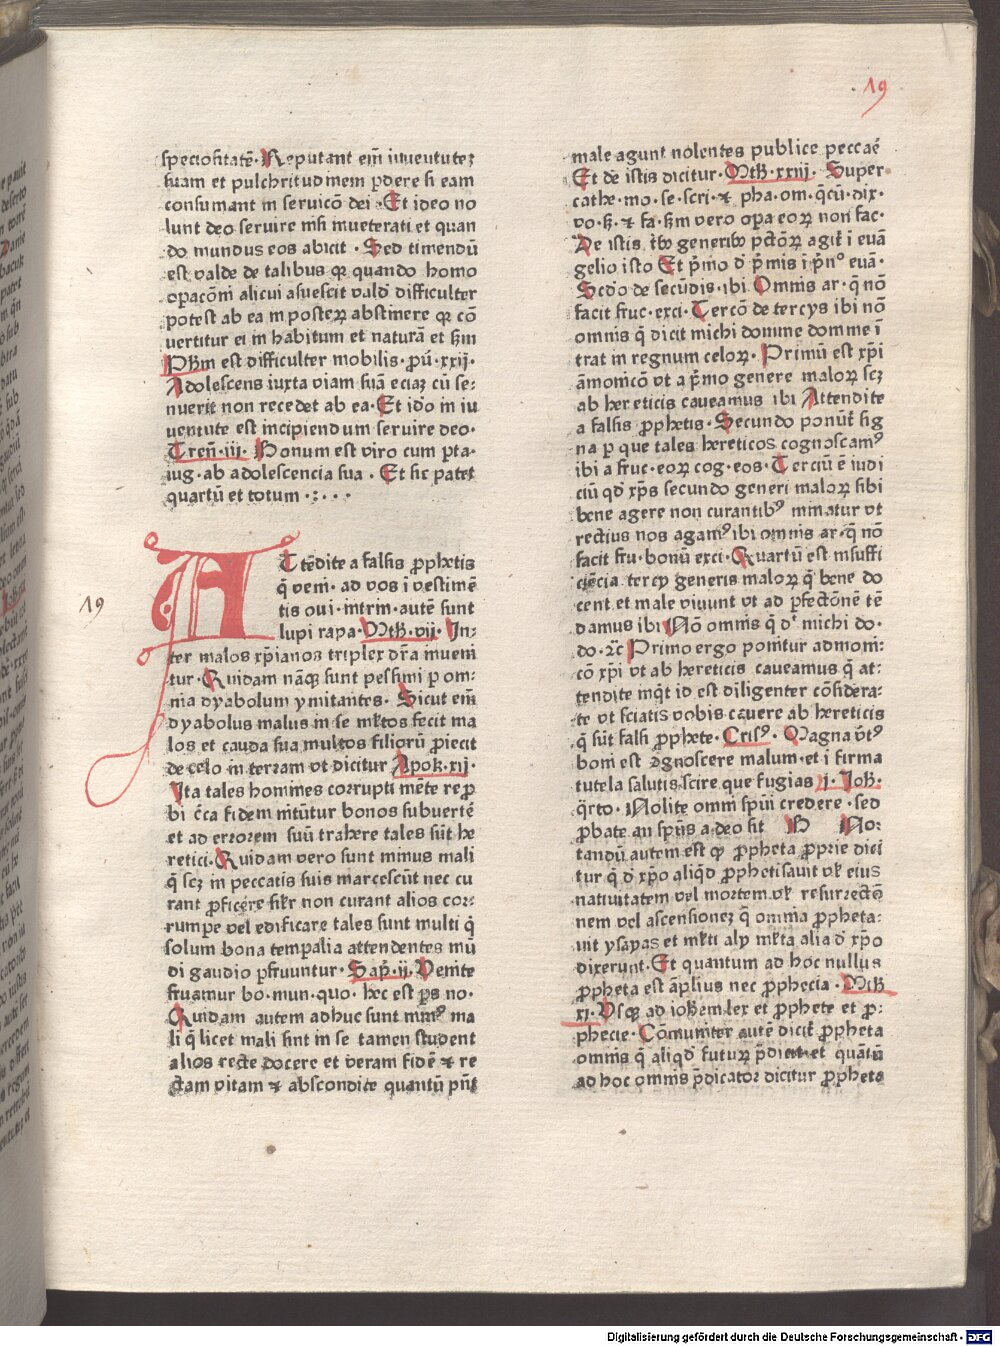 19
speciositatē. Reputant em̄ iuuentutez
suam et pulchritudinem ꝑdere si eam
consumant in seruicō dei. Et ideo no
lunt deo seruire nisi inueterati et quan
do mundus eos abicit. Sed timendū
est valde de talibus qꝛ quando homo
oꝑacōni alicui asuescit vald̄ difficulter
potest ab ea in posteꝝ abstinere qꝛ cō
uertitur ei in habitum et naturā et ẜm
Ph̄m est difficulter mobilis. ꝓu̅. xxij.
Adolescens iuxta viam suā eciaꝫ cū se:
nuerit non recedet ab ea. Et ido̅ in iu
uentute est incipiendum seruire deo.
Tren̅. iij. Bonum est viro cum ꝑta.
iug. ab adolescencia sua. Et sic patet
quartū et totum
19
ATtēdite a falsis ꝓphetis
q̄ veni. ad vos ī vestimē
tis oui. intrin. autē sunt
lupi rapa. Mth̄. vij. In:
ter malos xp̄ianos triplex dr̄a inueni
tur. Quidam nāqꝫ sunt pessimi ꝑ om:
nia dyabolum ymitantes. Sicut em̄
dyabolus malus in se ml̄tos fecit ma
los et cauda sua multos filiorū ꝓiecit
de celo in terram vt dicitur Apok. xij.
Ita tales homines corrupti mēte reꝓ
bi c̄ca fidem nitūtur bonos subuertē
et ad errorem suū trahere tales sūt he
retici. Quidam vero sunt minus mali
q̄ scꝫ in peccatis suis marcescūt nec cu
rant ꝓficere sil̄r non curant alios cor:
rumpe vel edificare tales sunt multi q̄
solum bona temꝑalia attendentes mū
di gaudio ꝑfruuntur. Sap̄. ij. Venite
fruamur bo. mun. quo. hec est ꝑs no.
Quidam autem adhuc sunt minꝰ ma
li q̄ licet mali sint in se tamen student
alios recte docere et veram fidē ⁊ re
ctam vitam ⁊ abscondite quantū pn̄t
male agunt nolentes publice peccaē
Et de istis dicitur. Mth̄. xxiij. Super
cathe. mo. se. scri. ⁊ pha. om. q̄cū. dix.
vo. ẜ. ⁊ fa. ẜm vero oꝑa eoꝝ non fac.
De istis tͥbꝫ generibꝫ pctōꝝ agit̄ ī euā
gelio isto Et p̄mo d̄ p̄mis ī pͥnº euā.
Scdo̅ de secūdis. ibi Omnis ar. q̄ nō
facit fruc. exci. Tercō de tercys ibi nō
omnis q̄ dicit michi domine domine ī
trat in regnum celoꝝ. Primū est xp̄i
āmonicō vt a p̄mo genere maloꝝ scꝫ
ab hereticis caueamus ibi Attendite
a falsis ꝓphetis. Secundo ponūt̄ sig
na ꝑ que tales hereticos cognoscamꝰ
ibi a fruc. eoꝝ cog. eos. Terciū ē iudi
ciū qd̄ xp̄s secundo generi maloꝝ sibi
bene agere non curantibꝰ minatur vt
rectius nos agamꝰ ibi omnis ar. q̄ nō
facit fru. bonū exci. Quartū est insuffi
ciēcia tercy generis maloꝝ q̄ bene do
cent et male viuunt vt ad ꝑfectōnē tē
damus ibi Nō omnis q̄ d̄r michi do.
do. ⁊c̄ Primo ergo ponitur admoni:
cō xp̄i vt ab hereticis caueamus q̄ at:
tendite inq̄t id est diligenter cōsidera:
te vt sciatis vobis cauere ab hereticis
q̄ sūt falsi ꝓphete. Crisꝰ. Magna vt̄ꝰ
boni est d̄gnoscere malum. et ī firma
tutela salutis scire que fugias j. Ioh̄.
q̄rto. Nolite omni spūi credere. sed
ꝓbate an spūs a deo sit B No:
tandū autem est qꝙ ꝓpheta ꝓprie dici
tur q̄ d̄ xp̄o aliqd̄ ꝓphetisauit vl̄ eius
natiuitatem vel mortem. vl̄ resurrectō
nem vel ascensionez q̄ omnia ꝓpheta:
uit ysayas et ml̄ti aly ml̄ta alia d̄ xp̄o
dixerunt. Et quantum ad hoc nullus
ꝓpheta est āplius nec ꝓphecia. Mth̄
xj. Vsqꝫ ad ioh̄em lex et ꝓphete et ꝓ:
phecie. Cōmuniter autē dicit̄ ꝓpheta
omnis q̄ aliqd̄ futurꝝ p̄dicit et quātū
ad hoc omnis p̄dicator dicitur ꝓpheta
Digitalisierung gefördert durch die Deutsche Forschungsgemeinschaft - DFG